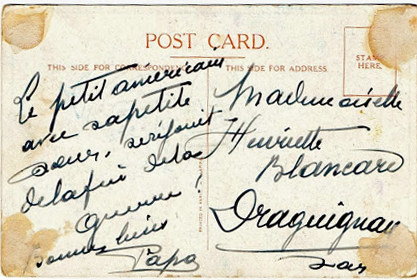 POST CARD.
THIS SIDE FOR CORRESPONDENCE
THIS SIDE FOR ADDRESS.
STAMP
HERE.
Le petit américain
avec sa petite
sœur, se réjouit
de la fin de la
Guerre
bonnes bises
Papa
Mademoiselle
Henriette
Blancard
Draguignan
Var